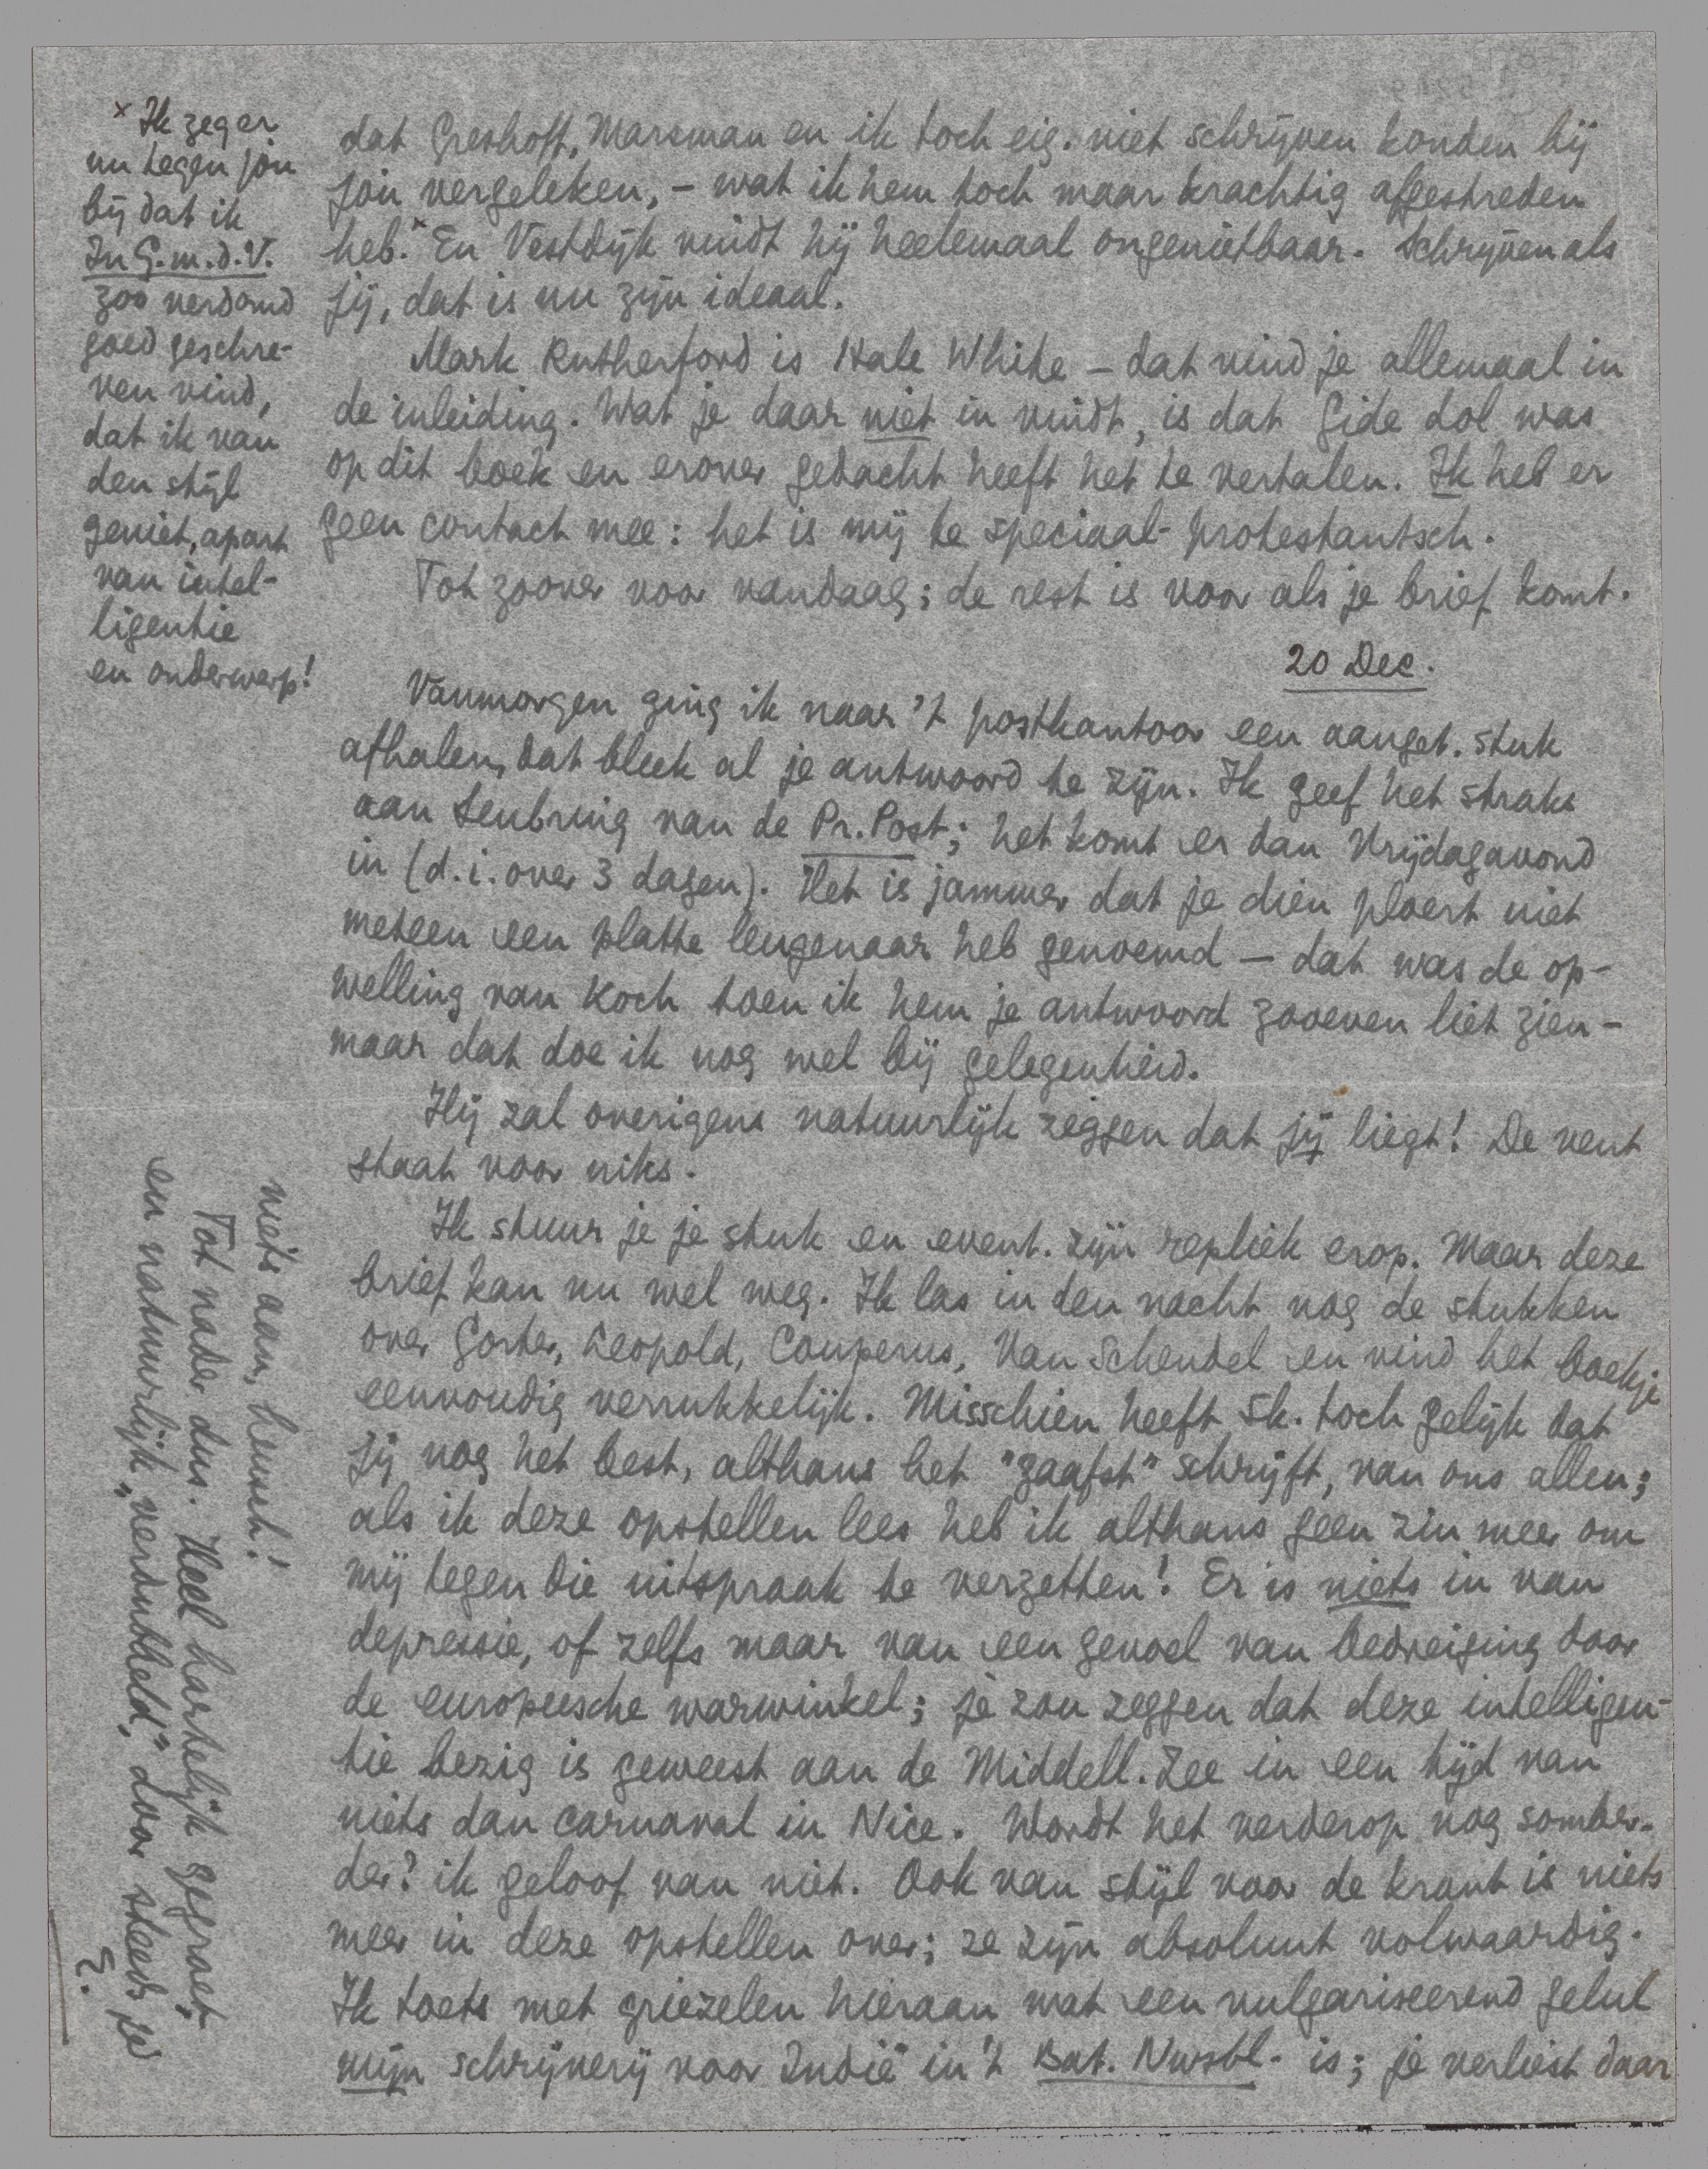 dat Greshoff, Marsman en ik toch eig. niet schrijven konden bij
jou vergeleken, – wat ik hem toch maar krachtig afgestreden
heb.ˣ En Vestdijk vindt hij heelemaal ongenietbaar. Schrijven als
jij, dat is nu zijn ideaal.
Mark Rutherford is Hale White – dat vind je allemaal in
de inleiding. Wat je daar niet in vindt, is dat Gide dol was
op dit boek en erover gedacht heeft het te vertalen. Ik heb er
geen contact mee: het is mij te speciaal-protestantsch.
Tot zoover voor vandaag; de rest is voor als je brief komt.
20 Dec.
Vanmorgen ging ik naar 't postkantoor een aanget. stuk
afhalen, dat bleek al je antwoord te zijn. Ik geef het straks
aan Leubring van de Pr. Post; het komt er dan Vrijdagavond
in (d.i. over 3 dagen). Het is jammer dat je dien ploert niet
meteen een platte leugenaar heb genoemd – dat was de op-
welling van Koch toen ik hem je antwoord zooeven liet zien –
maar dat doe ik nog wel bij gelegenheid.
Hij zal overigens natuurlijk zeggen dat jij liegt! De vent
staat voor niks.
Ik stuur je je stuk en event. zijn repliek erop. Maar deze
brief kan nu wel weg. Ik las in den nacht nog de stukken
over Gorter, Leopold, Couperus, Van Schendel en vind het boekje
eenvoudig verrukkelijk. Misschien heeft Sk. toch gelijk dat
jij nog het best, althans het "gaafst" schrijft, van ons allen;
als ik deze opstellen lees heb ik althans geen zin meer om
mij tegen die uitspraak te verzetten! Er is niets in van
depressie, of zelfs maar van een gevoel van bedreiging door
de europeesche warwinkel; je zou zeggen dat deze intelligen-
tie bezig is geweest aan de Middell. Zee in een tijd van
niets dan carnaval in Nice. Wordt het verderop nog somber-
der? ik geloof van niet. Ook van stijl voor de krant is niets
meer in deze opstellen over; ze zijn absoluut volwaardig.
Ik toets met griezelen hieraan wat een vulgariseerend gelul
mijn schrijverij voor Indië in 't Bat. Nwsbl. is; je verliest daar
niets aan, heusch!
Tot nader dus. Heel hartelijk gegroet,
en natuurlijk "verdubbeld," door steeds je
E.
ˣ Ik zeg er
nu tegen jou
bij dat ik
In G.m.d.V.
zoo verdomd
goed geschre-
ven vind,
dat ik van
den stijl
geniet, apart
van intel-
ligentie
en onderwerp!